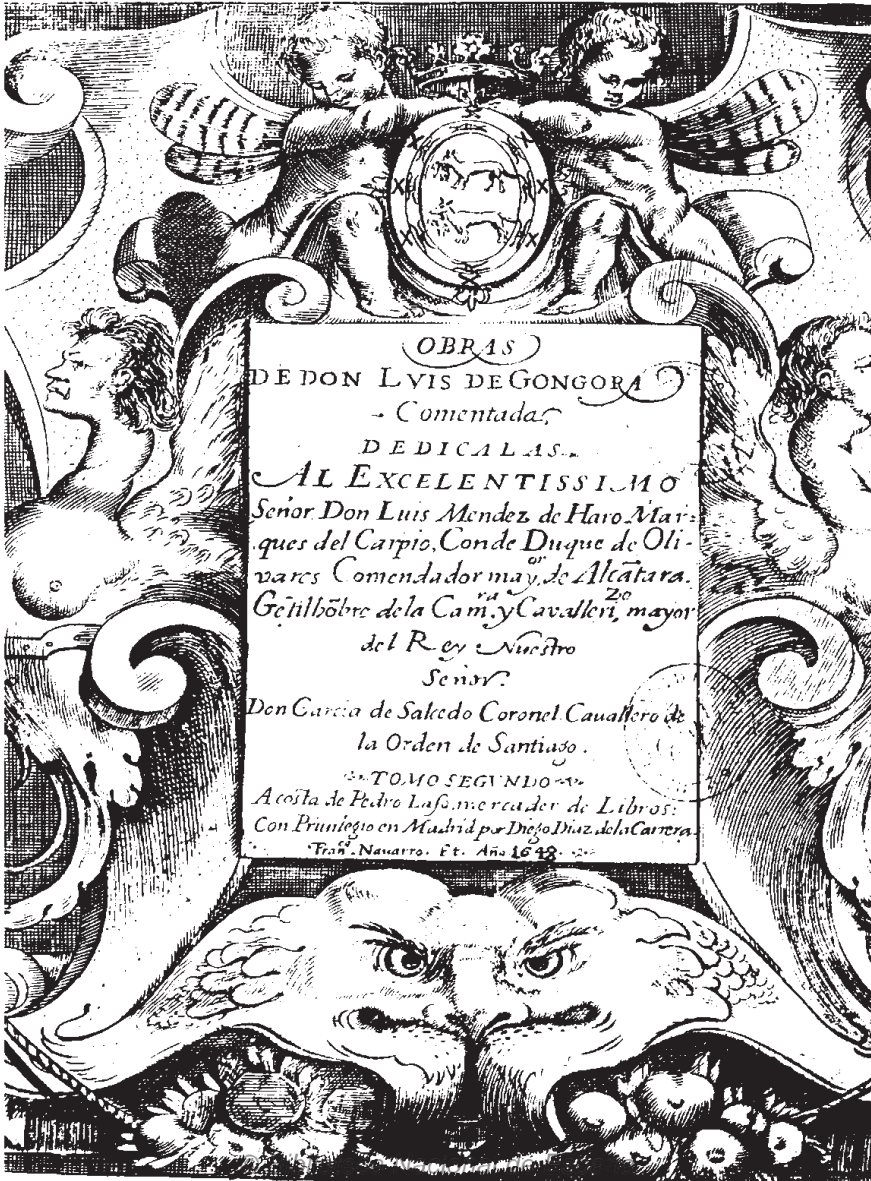 OBRAS
DE DON LVIS DE GONGORA
Comentadas
DEDICALAS
AL EXCELENTISSIMO
Señor Don Luis Mendez de Haro Mar-
ques del Carpio, Conde Duque de Oli-
vares Comendador may.or de Alcātara.
Gētilhōbre de la Cam.ra y Cavalleri,zo mayor
del Rey Nuestro
Señor.
Don Garcia de Salcedo Coronel Cauallero de
la Orden de Santiago.
TOMO SEGVNDO
A costa de Pedro Laso mercader de Libros:
Con Priuilegio en Madrid por Diego Diaz de la Carrera.
Fran.o Nauarro. Et. Año 1648.